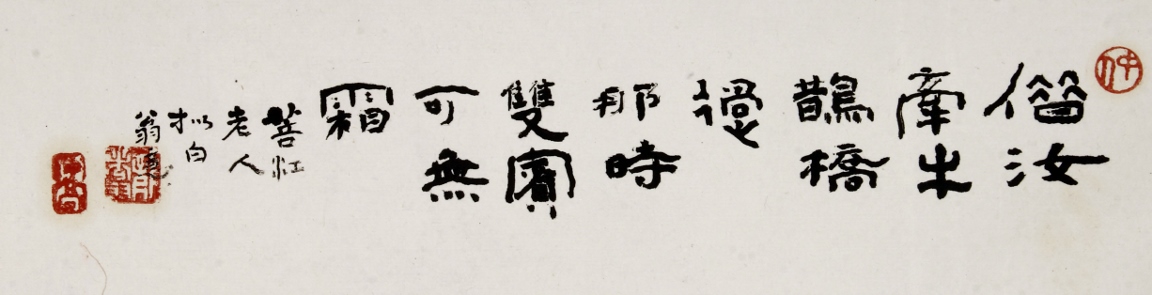 借汝
牽牛
鵲橋
過
那時
雙賓
可無
霜
菩
老人
拟白
翁意